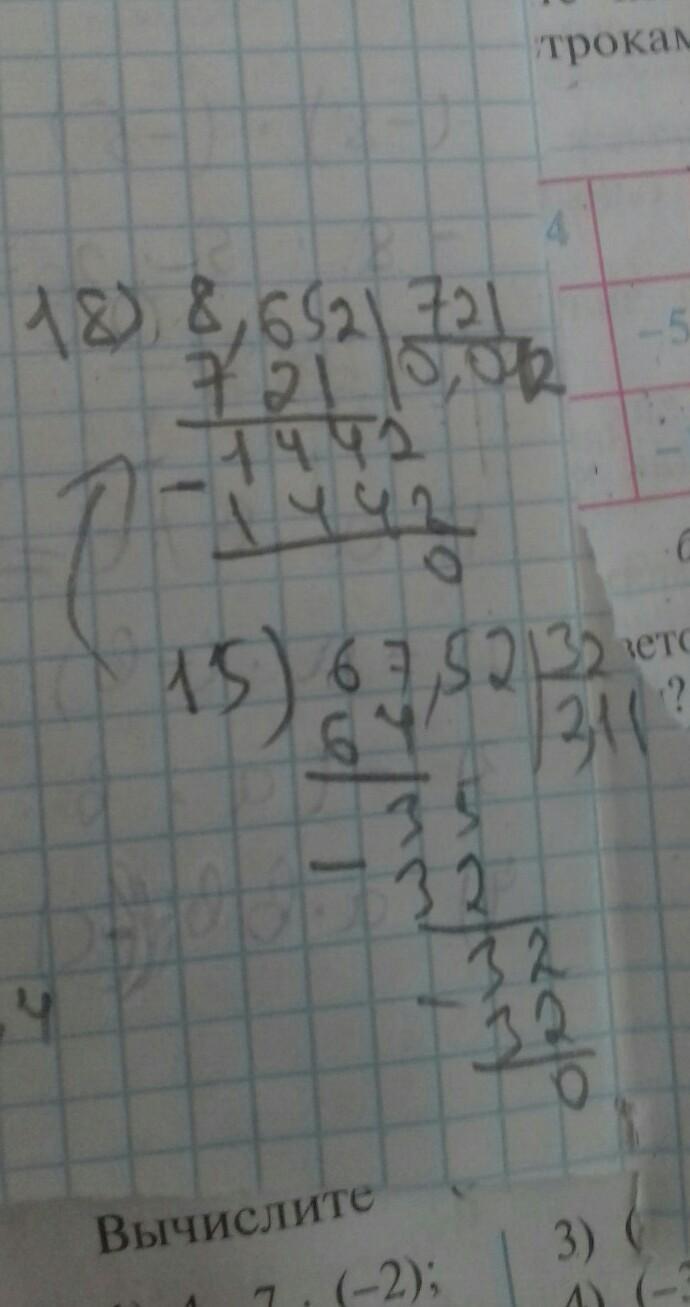 трокам
4
18) 8,652 | 721
-5
721 | 0,012
1442
- 1442
0
15) 67,52 | 32
64 | 2,11
?
35
- 32
32
- 32
0
4
Вычислите
3) (
7 · (-2);
4) (-3